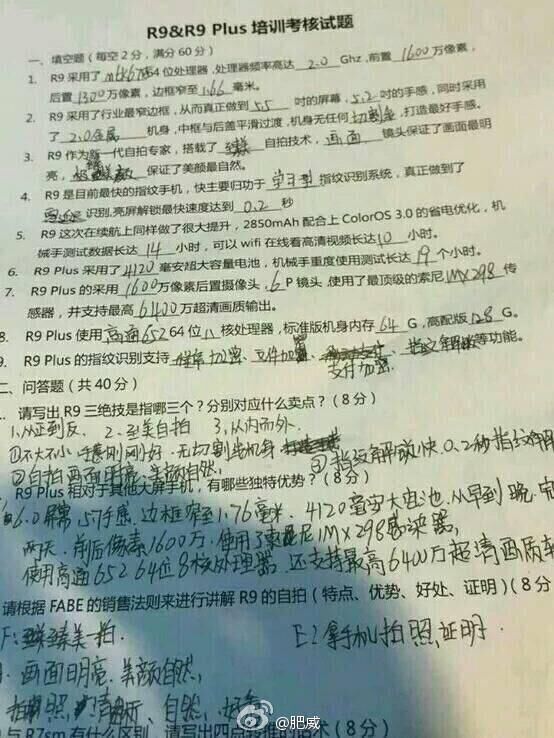 R9&R9 Plus 培训考核试题
一、填空题（每空2分，满分60分）
1. R9 采用了 mtk6755 64位处理器,处理器频率高达 2.0 Ghz,前置 1600 万像素，
后置 1300 万像素，边框窄至 1.66 毫米。
2. R9 采用了行业最窄边框，从而真正做到 5.5 吋的屏幕，5.2 吋的手感，同时采用
了 2.0金属 机身，中框与后盖平滑过渡,机身无任何 切割金,打造最好手感。
3. R9 作为新一代自拍专家，搭载了 臻美 自拍技术，画面 镜头保证了画面最明
亮， 保证了美颜最自然。
4. R9 是目前最快的指纹手机，快主要归功于 学习型 指纹识别系统，真正做到了
识别,亮屏解锁最快速度达到 0.2 秒
5. R9 这次在续航上同样做了很大提升，2850mAh 配合上 ColorOS 3.0 的省电优化，机
械手测试数据长达 14 小时，可以 wifi 在线看高清视频长达 10 小时。
6. R9 Plus 采用了 4120 毫安超大容量电池，机械手重度使用测试长达 19 个小时。
7. R9 Plus 的采用 1600 万像素后置摄像头，6 P 镜头,使用了最顶级的索尼 IMX298 传
感器，并支持最高 6400 万超清画质输出。
8. R9 Plus 使用 高通652 64位 八 核处理器，标准版机身内存 64 G,高配版 128 G。
9. R9 Plus 的指纹识别支持 、文件加密、 、 等功能。
支付加密
二、问答题（共40分）
请写出 R9 三绝技是指哪三个？分别对应什么卖点？（8分）
1.从正到反. 2.至美自拍 3.从内而外.
①不大不小手感刚刚好.无切割 机身 ③指纹解放快.0.2秒指纹解
②自拍画面明亮，美颜自然，
R9 Plus 相对于其他大屏手机，有哪些独特优势？（8分）
6.0屏幕 5.7手感.边框窄至1.76毫米. 4120毫安大电池.从早到晚.
两天.前后像素1600万.使用了索尼IMX298感染器，
使用高通652 64位8核处理器.还支持最高6400万超清画质
请根据 FABE 的销售法则来进行讲解 R9 的自拍（特点、优势、好处、证明）（8分
F: 臻美一拍. E:拿手机拍照证明.
画面明亮.美颜自然，
拍照 清晰、自然、好看
与 R7sm 有什么区别，请写出四点 术（8分）
@肥威